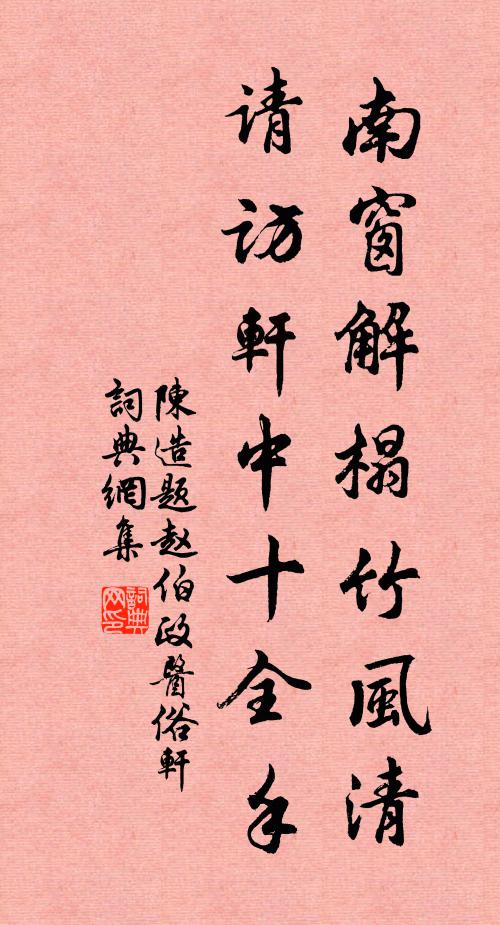 南窗解榻竹風清
请访軒中十全手
陳造题赵伯政醫俗軒
詞典網集
詞典网印